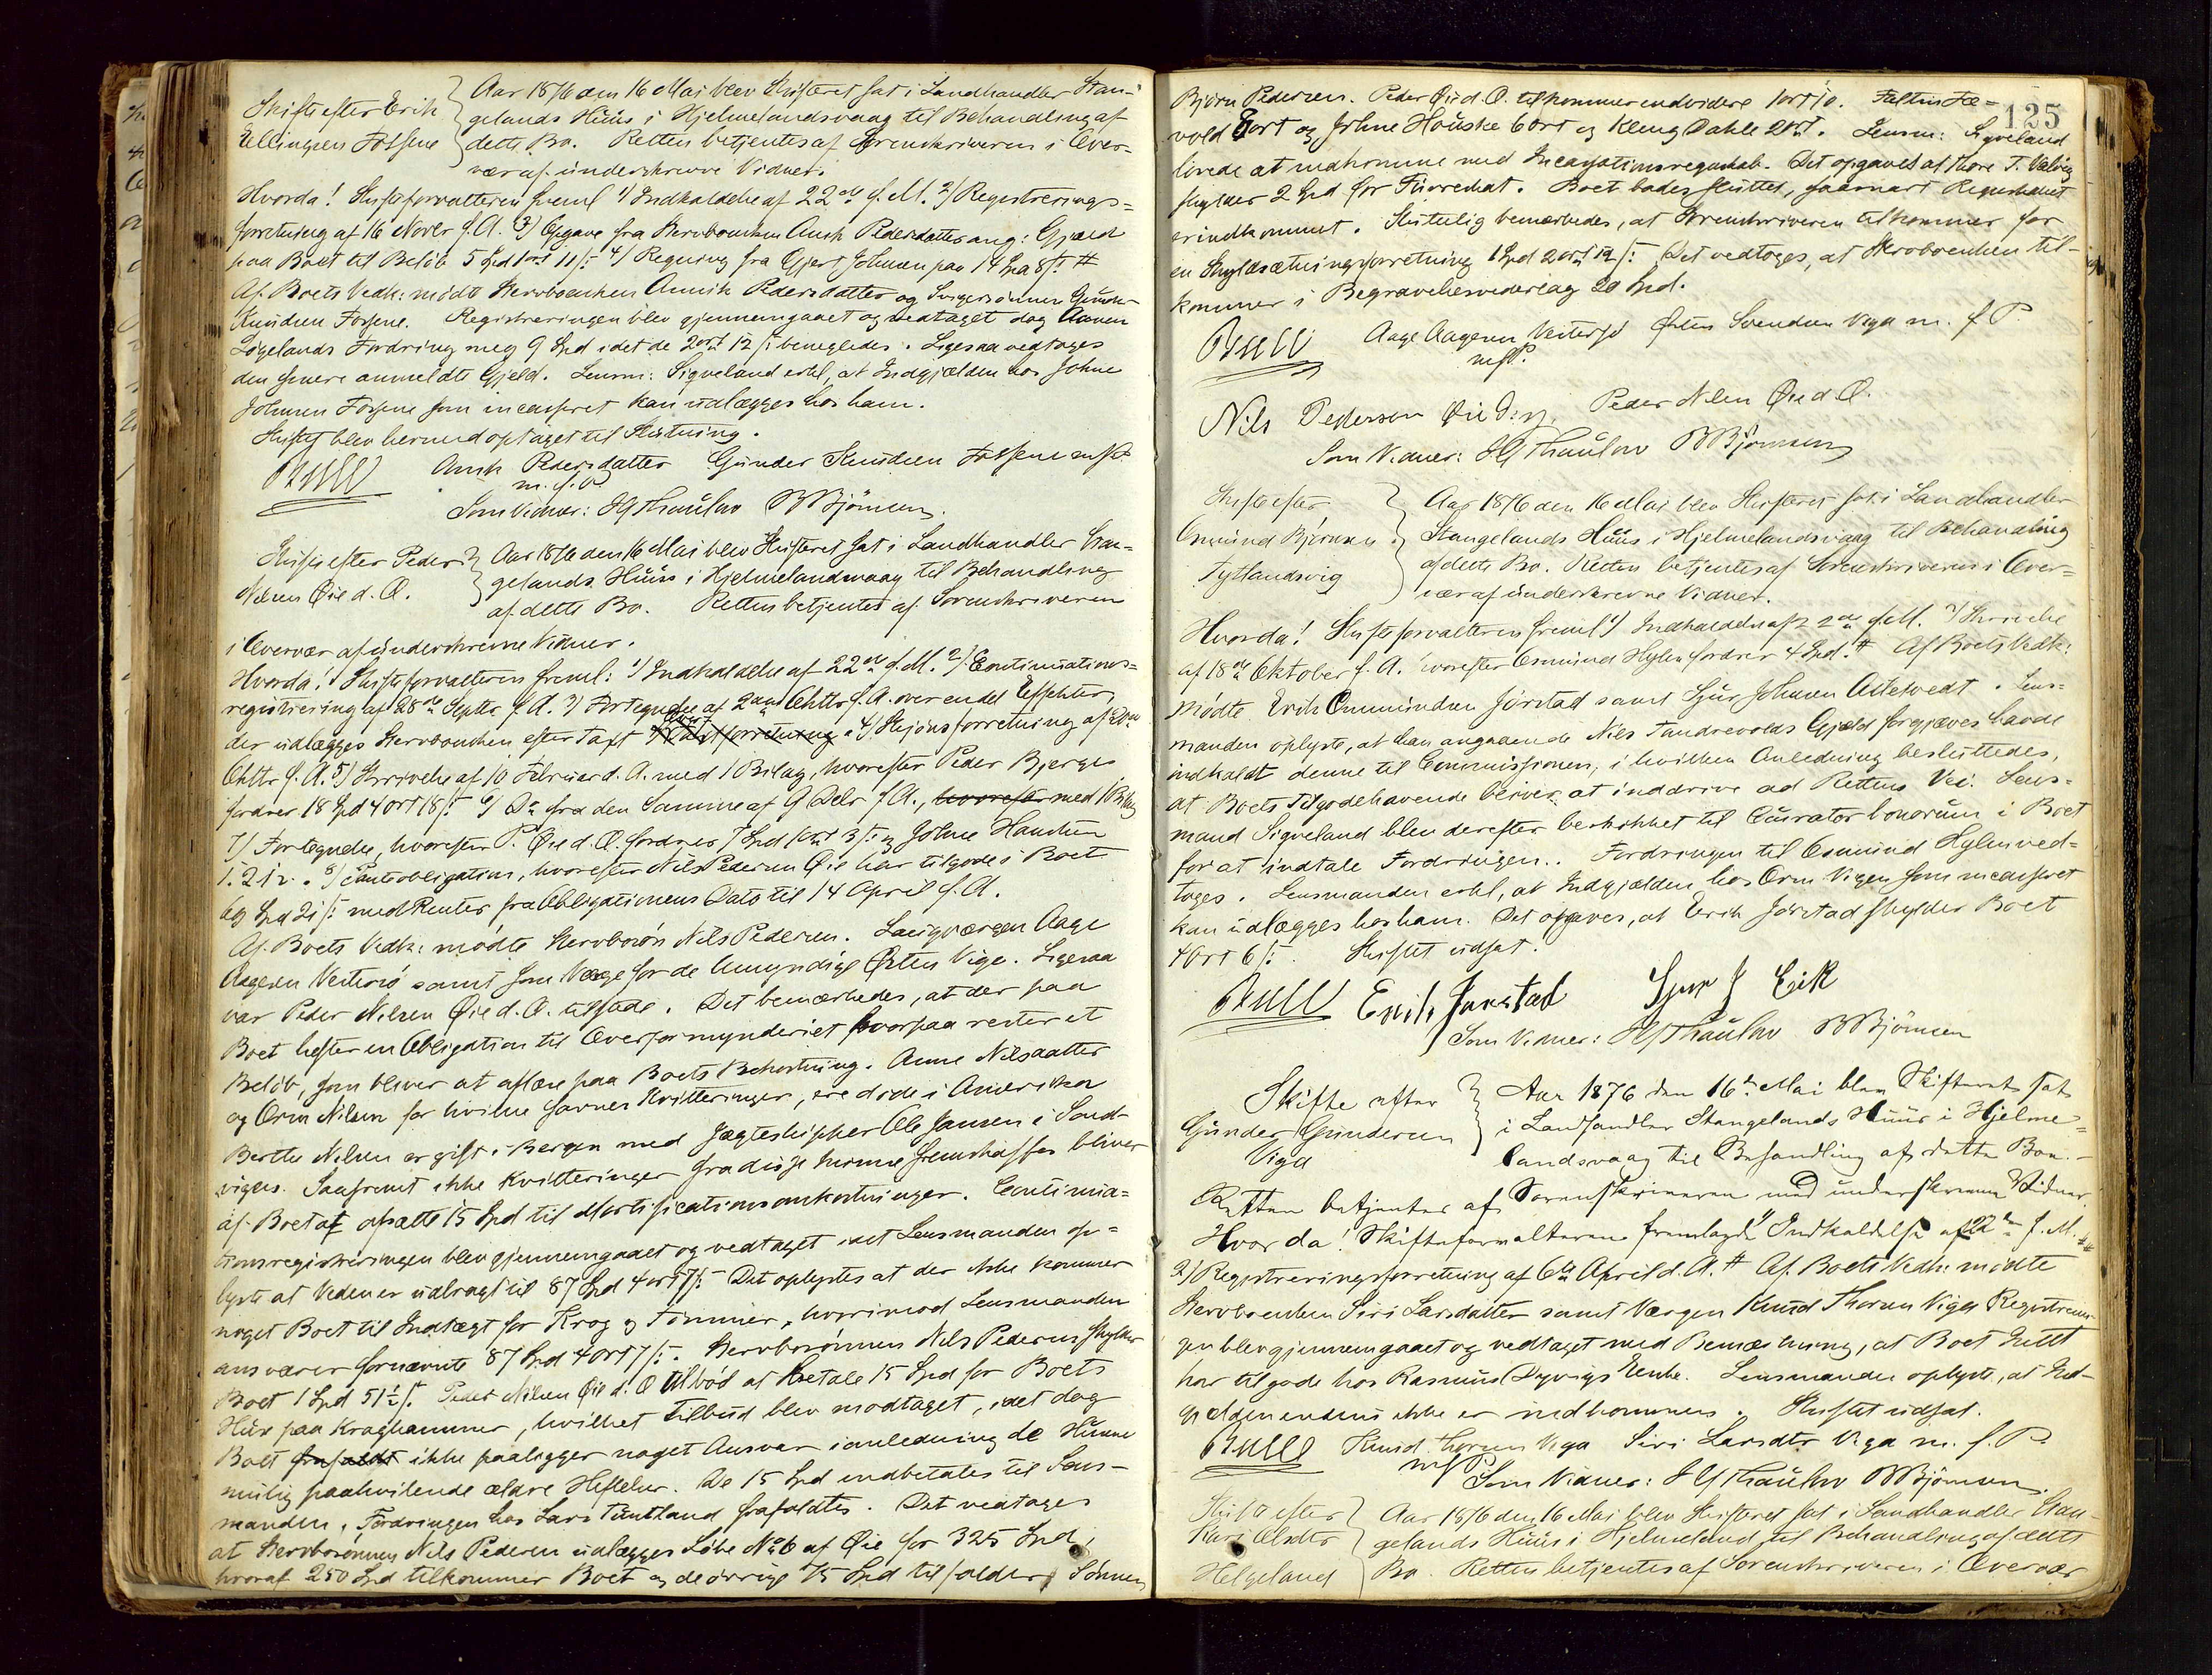 Skifte efter Erik
Ellingsen Fossene
Aar 1876 den 16 Mai blev Skifteret sat i Landhandler Stan-
gelands Huus i Hjelmelandsvaag til Behandling af
dette Bo. Retten betjentes af Sorenskriveren i Over-
vær af underskrevne Vidner.
Hvorda! Skifteforvalteren freml 1) Indkaldelse af 22de f. M. 2) Registrerings-
forretning af 16 Novbr f. A. 3) Opgave fra Stervboenken Anich Pedersdatter ang: Gjæld
paa Boet til Beløb 5 Spd 1 ort 11 ß 4) Regning fra Gjert Johnsen paa 14 Spd 8 ß #
Af Boets Vedk: mødte Stervboenken Annik Pedersdatter og Svigersønnen Gunder
Knudsen Fossene. Registreringen blev gjennemgaaet og vedtaget dog
Fordring med 9 Spd idet de 2 ort 12 ß benegtedes. Ligesaa vedtages
den senere anmeldte Gjeld. Lensm: Sigveland erkl, at Indgjælden hos Johne
Johnsen Fossene som incasseret kan udlægges hos ham.
Skiftet blev hermed optaget til Slutning.
Bull Anik Pedersdatter Gunder Knudsen Fossene m.f.P.
m. f. P.
Som Vidner: H Thaulow B Bjørnsen.
Skifte efter Peder
Nilsen Øie d. Æ.
Aar 1876 den 16 Mai blev Skifteret sat i Landhandler Stan-
gelands Huus i Hjelmelandsvaag til Behandling
af dette Bo. Retten betjentes af Sorenskriveren
i Overvær af underskrevne Vidner.
Hvorda! Skifteforvalteren freml: 1) Indkaldelse af 22de f. M. 2) Continuations-
registrering af 28de Septbr f. A. 3) Fortegnelse af 2den Oktbr f. A. over endel Effekter
der udlægges Stervboenken efter Taxt 4) Skjønsforretning af 20de
Oktbr f. A. 5) Skrivelse af 10 Februar d. A. med 1 Bilag, hvorefter Peder Bjerge
fordrer 18 Spd 4 ort 18 ß 6) Do fra den Samme af 9 Decbr f. A., hvorefter med 1 Bilag
7) Fortegnelse, hvorefter P. Øie d. Æ. fordrer 7 Spd 1 ort 3 ß og Johne
1. 2. 12. 8) Panteobligation, hvorefter Nils Pedersen Øie har tilgode i Boet
69 Spd 21 ß med Renter fra Obligationens Dato til 14 April f. A.
Af Boets Vedk: mødte Stervbosøn Nils Pedersen. Laugværgen Aage
Aagesen Vestersø samt som Værge for de Umyndige Østen Viga. Ligesaa
var Peder Nilsen Øie d. Æ. tilstede. Det bemærkedes, at der paa
Boet hefter en Obligation til Overformynderiet hvorpaa rester et
Beløb, som bliver at aflæse paa Boets Bekostning. Anne Nilsdatter
og Orm Nilsen for hvilke savnes Kvitteringer, ere døde i Amerika
Berthe Nilsen er gift i Bergen med Jægteskipper Ole Jansen i Sand-
vigen. Saafremt ikke Kvitteringer fra disse kunne fremskaffes bliver
af Boet at afsætte 15 Spd til Mortificationsomkostninger. Continua-
tionsregistreringen blev gjennemgaaet og vedtaget idet Lensmanden op-
lyste at Veden er udbragt til 87 Spd 4 ort 7 ß. Det oplystes at der ikke kommer
noget Boet til Indtægt for Krog og Tømmer, hvorimod Lensmanden
ansvarer fornævnte 87 Spd 4 ort 7 ß. Stervbosønnen Nils Pedersen skylder
Boet 1 Spd 51½ ß. Peder Nilsen Øie d. Æ tilbød at betale 15 Spd for Boets
Huse paa Kroghammer, hvilket Tilbud blev modtaget, idet dog
Boet frafaldt ikke paalægger noget Ansvar i anledning de Husene
mulig paahvilende ældre Heftelser. De 15 Spd indbetales til Lens-
manden. Fordringen hos Lars Tuntland frafaldtes. Det vedtages
at Stervbosønnen Nils Pedersen udlægges Løbe No 6 af Øie for 325 Spd,
hvoraf 250 Spd tilkommer Boet og de øvrige 75 Spd tilfalder Sønnen
125
Bjørn Pedersen. Peder Øie d. Æ. tilkommer endvidere 1 ort 10.
vold 3 ort og Johne Hauske 6 ort og Kleng Dahle 2 ort. Lensm: Sigveland
lovede at indkomme med Incassationsregnskab. Det opgaves at Thore T. Valvig
skylder 2 Spd for Furredal. Boet bades sluttet, saasnart Regnskabet
er indkommet. Sluttelig bemærkedes, at Sorenskriveren tilkommer for
en Skyldsætningsforretning 1 Spd 2 ort 12 ß. Det vedtoges, at Stervboenken til-
kommer i Begravelsesvederlag 20 Spd.
Bull Aage Aagesen Vestersø Østen Svendsen Viga m. f P
m.f.P.
Nils Pederson Øie Peder Nilsen Øie d. Æ.
Som Vidner: H Thaulow B Bjørnsen
Skifte efter
Osmund Bjørnsen
Tytlandsvig
Aar 1876 den 16 Mai blev Skifteret sat i Landhandler
Stangelands Huus i Hjelmelandsvaag til Behandling
af dette Bo. Retten betjentes af Sorenskriveren i Over-
vær af underskrevne Vidner.
Hvorda! Skifteforvalteren freml 1) Indkaldelse af 22de f. M. 2) Skrivelse
af 18de Oktober f. A. hvorefter Osmund Hylen fordrer 4 Spd. # Af Boets Vedk:
mødte Erik Osmundsen Jørstad samt Sjur Johnsen . Lens-
manden oplyste, at han angaaende Nils Tandrevolds Gjæld forgjæves havde
indkaldt denne til Commissionen, i hvilken Anledning besluttedes,
at Boets Tilgodehavende bliver at inddrive ad Rettens Vei. Lens-
mand Sigveland blev derefter beskikket til Curator bonorum i Boet
for at indtale Fordringen. Fordringen til Osmund Hylen ved-
toges. Lensmanden erkl, at Indgjælden hos Orm Vigen som incasseret
kan udlægges hos ham. Det opgaves, at Erik Jørstad skylder Boet
4 Ort 6 ß. Skiftet udsat.
Bull Erik Jørstad Sjur J Eik
Som Vidner: H Thaulow B Bjørnsen
Skifte efter
Gunder Gundersen
Viga
Aar 1876 den 16de Mai blev Skifteret sat
i Landhandler Stangelands Huus i Hjelme-
landsvaag til Behandling af dette Bo. -
Retten betjentes af Sorenskriveren med underskrevne Vidner.
Hvorda! Skifteforvalteren fremlagde 1) Indkaldelse af 22de f. M.
2) Registreringsforretning af 6te April d. A. # Af Boets Vedk: mødte
Stervboenken Siri Larsdatter samt Værgen Knud Thorsen Viga Registrerin-
gen blev gjennemgaaet og vedtaget med Bemærkning, at Boet Intet
har tilgode hos Rasmus Dyvigs Enke. Lensmanden oplyste, at Ind-
gjælden endnu ikke er indkommen. Skiftet udsat.
Bull Knud Thorsen Viga Siri Larsdtr Viga m. f. P.
m f P
Som Vidner: H Thaulow B Bjørnsen.
Skifte efter
Kari Olsdtr
Helgeland
Aar 1876 den 16 Mai blev Skifteret sat i Landhandler Stan-
gelands Huus i Hjelmeland til Behandling af dette
Bo. Retten betjentes af Sorenskriveren i Overvær